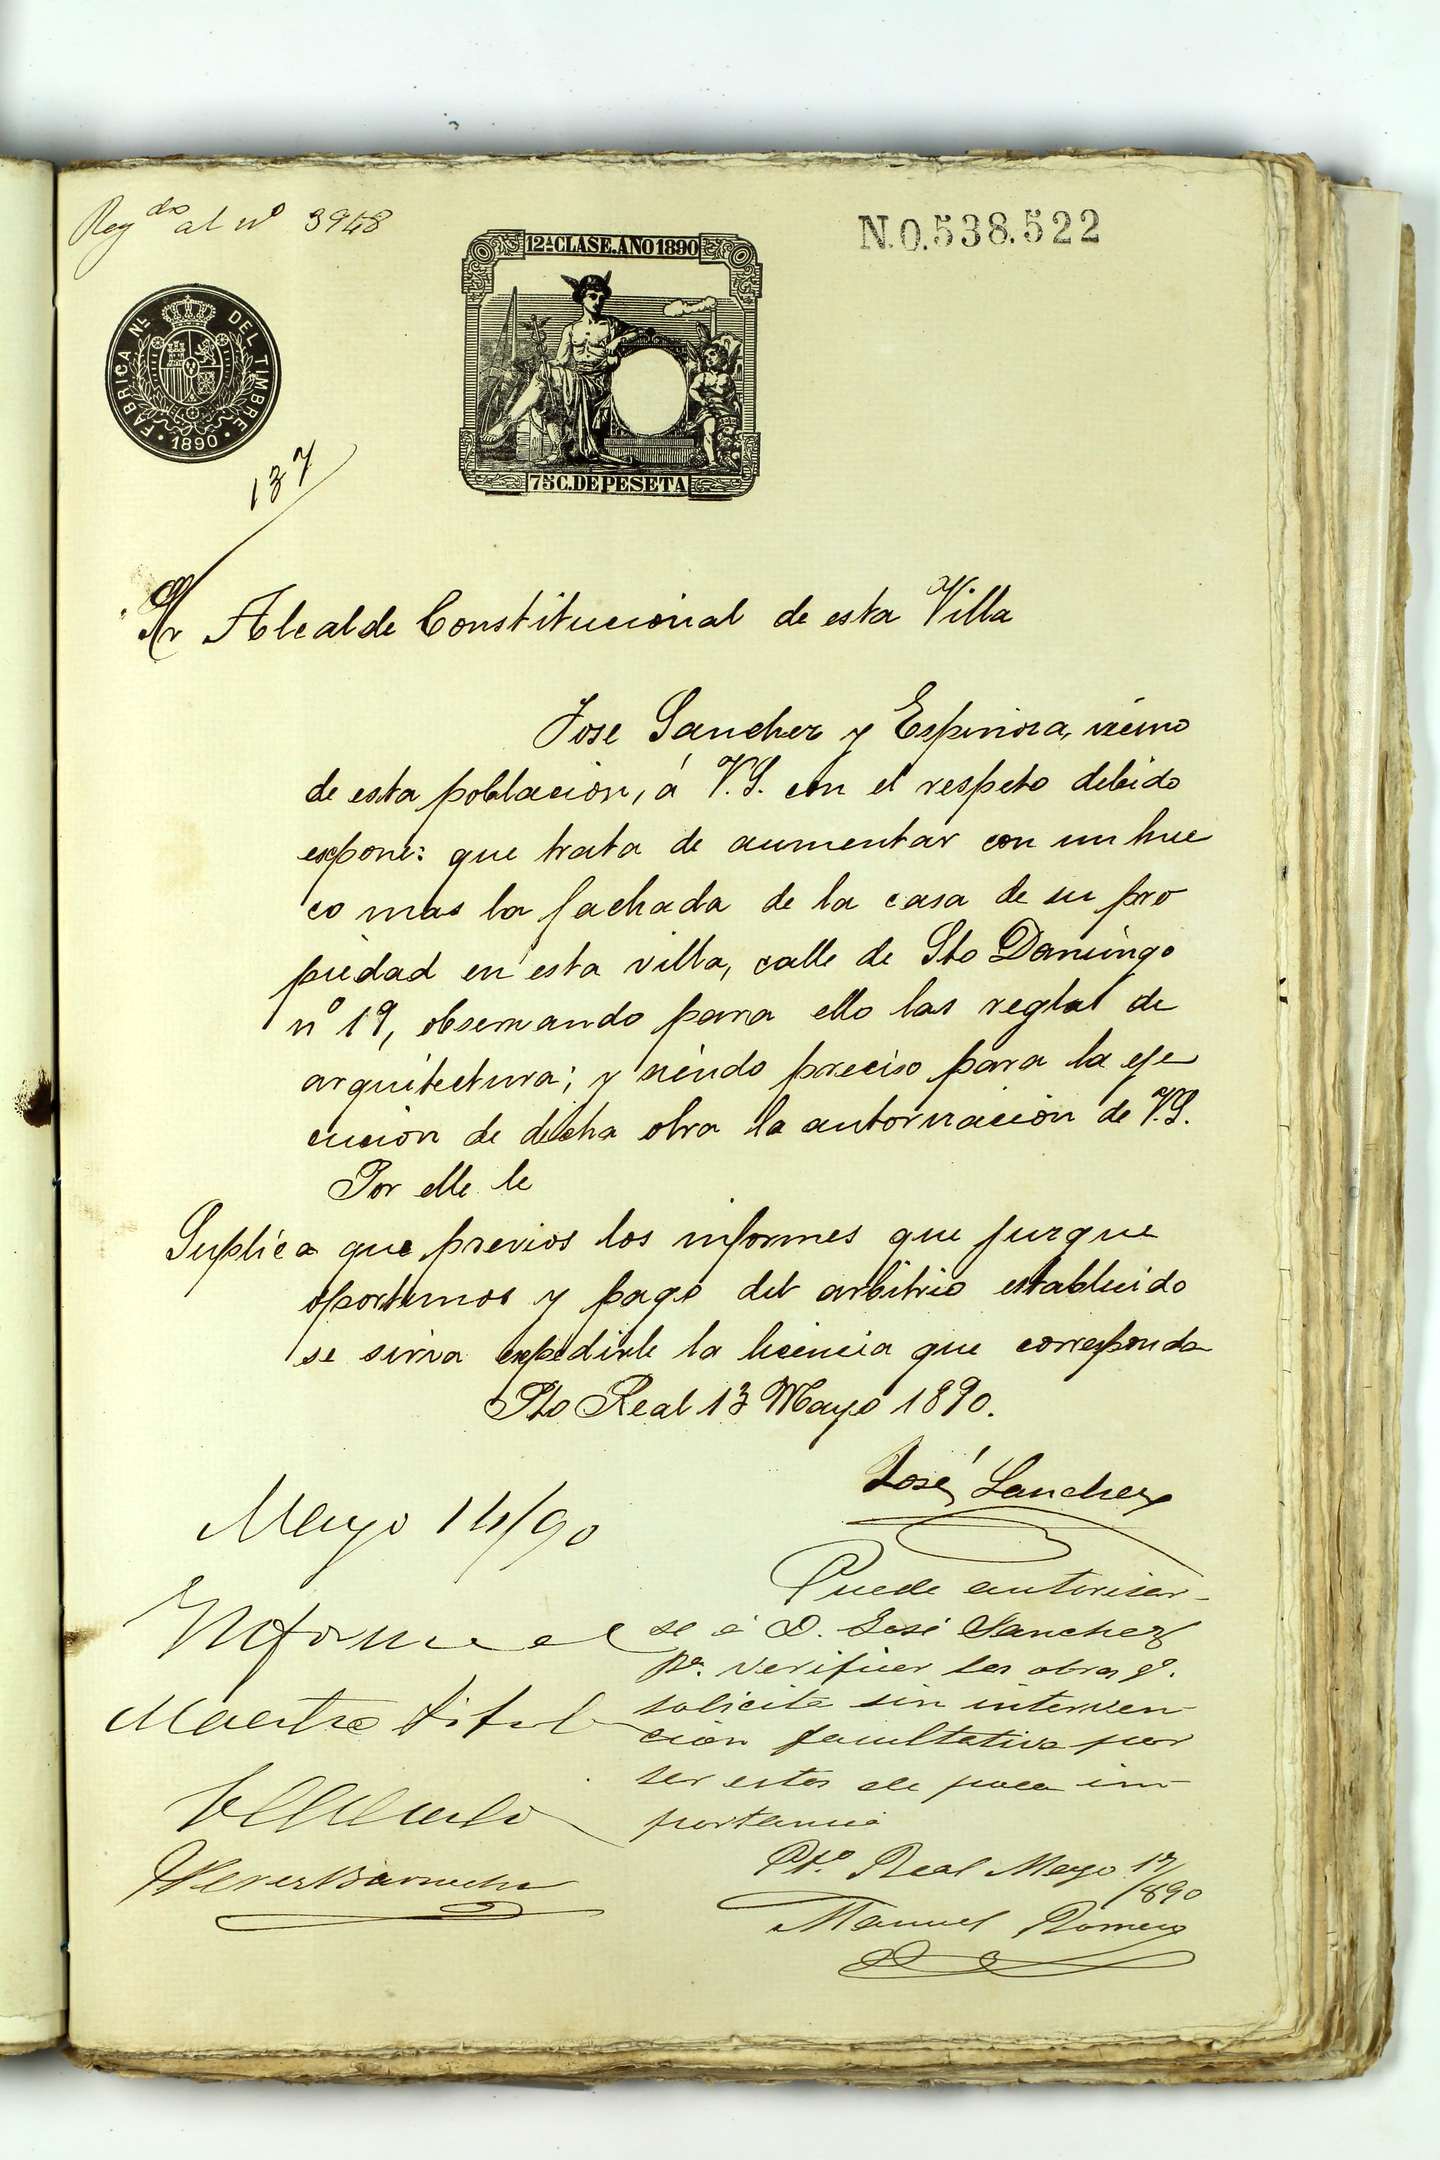 Reg.do al nº 3948
N.0.538.522
12ª CLASE. AÑO 1890
FÁBRICA NL. DEL TIMBRE
· 1890 ·
75 C. DE PESETA
137
Sr Alcalde Constitucional de esta Villa
Jose Sanchez y Espinosa, vecino
de esta poblacion, á V.S. con el respeto debido
expone: que trata de aumentar con un hue
co mas la fachada de la casa de su pro
piedad en esta villa, calle de Sto Domingo
nº 19, observando para ello las reglas de
arquitectura; y siendo preciso para la eje
cucion de dicha obra la autorizacion de V.S.
Por ello le
Suplica que previos los informes que juzgue
oportunos y pago del arbitrio establecido
se sirva expedirle la licencia que corresponda
Pto Real 13 Mayo 1890.
José Sanchez
Mayo 14/90
Informe el
Maestro titul
El Alcalde
Puede autorizar-
se á D. José Sanchez
pª. verificar las obras qe.
solicita sin interven-
cion facultativa por
ser estas de poca im-
portancia
Pto. Real Mayo 17/890
Manuel Romero